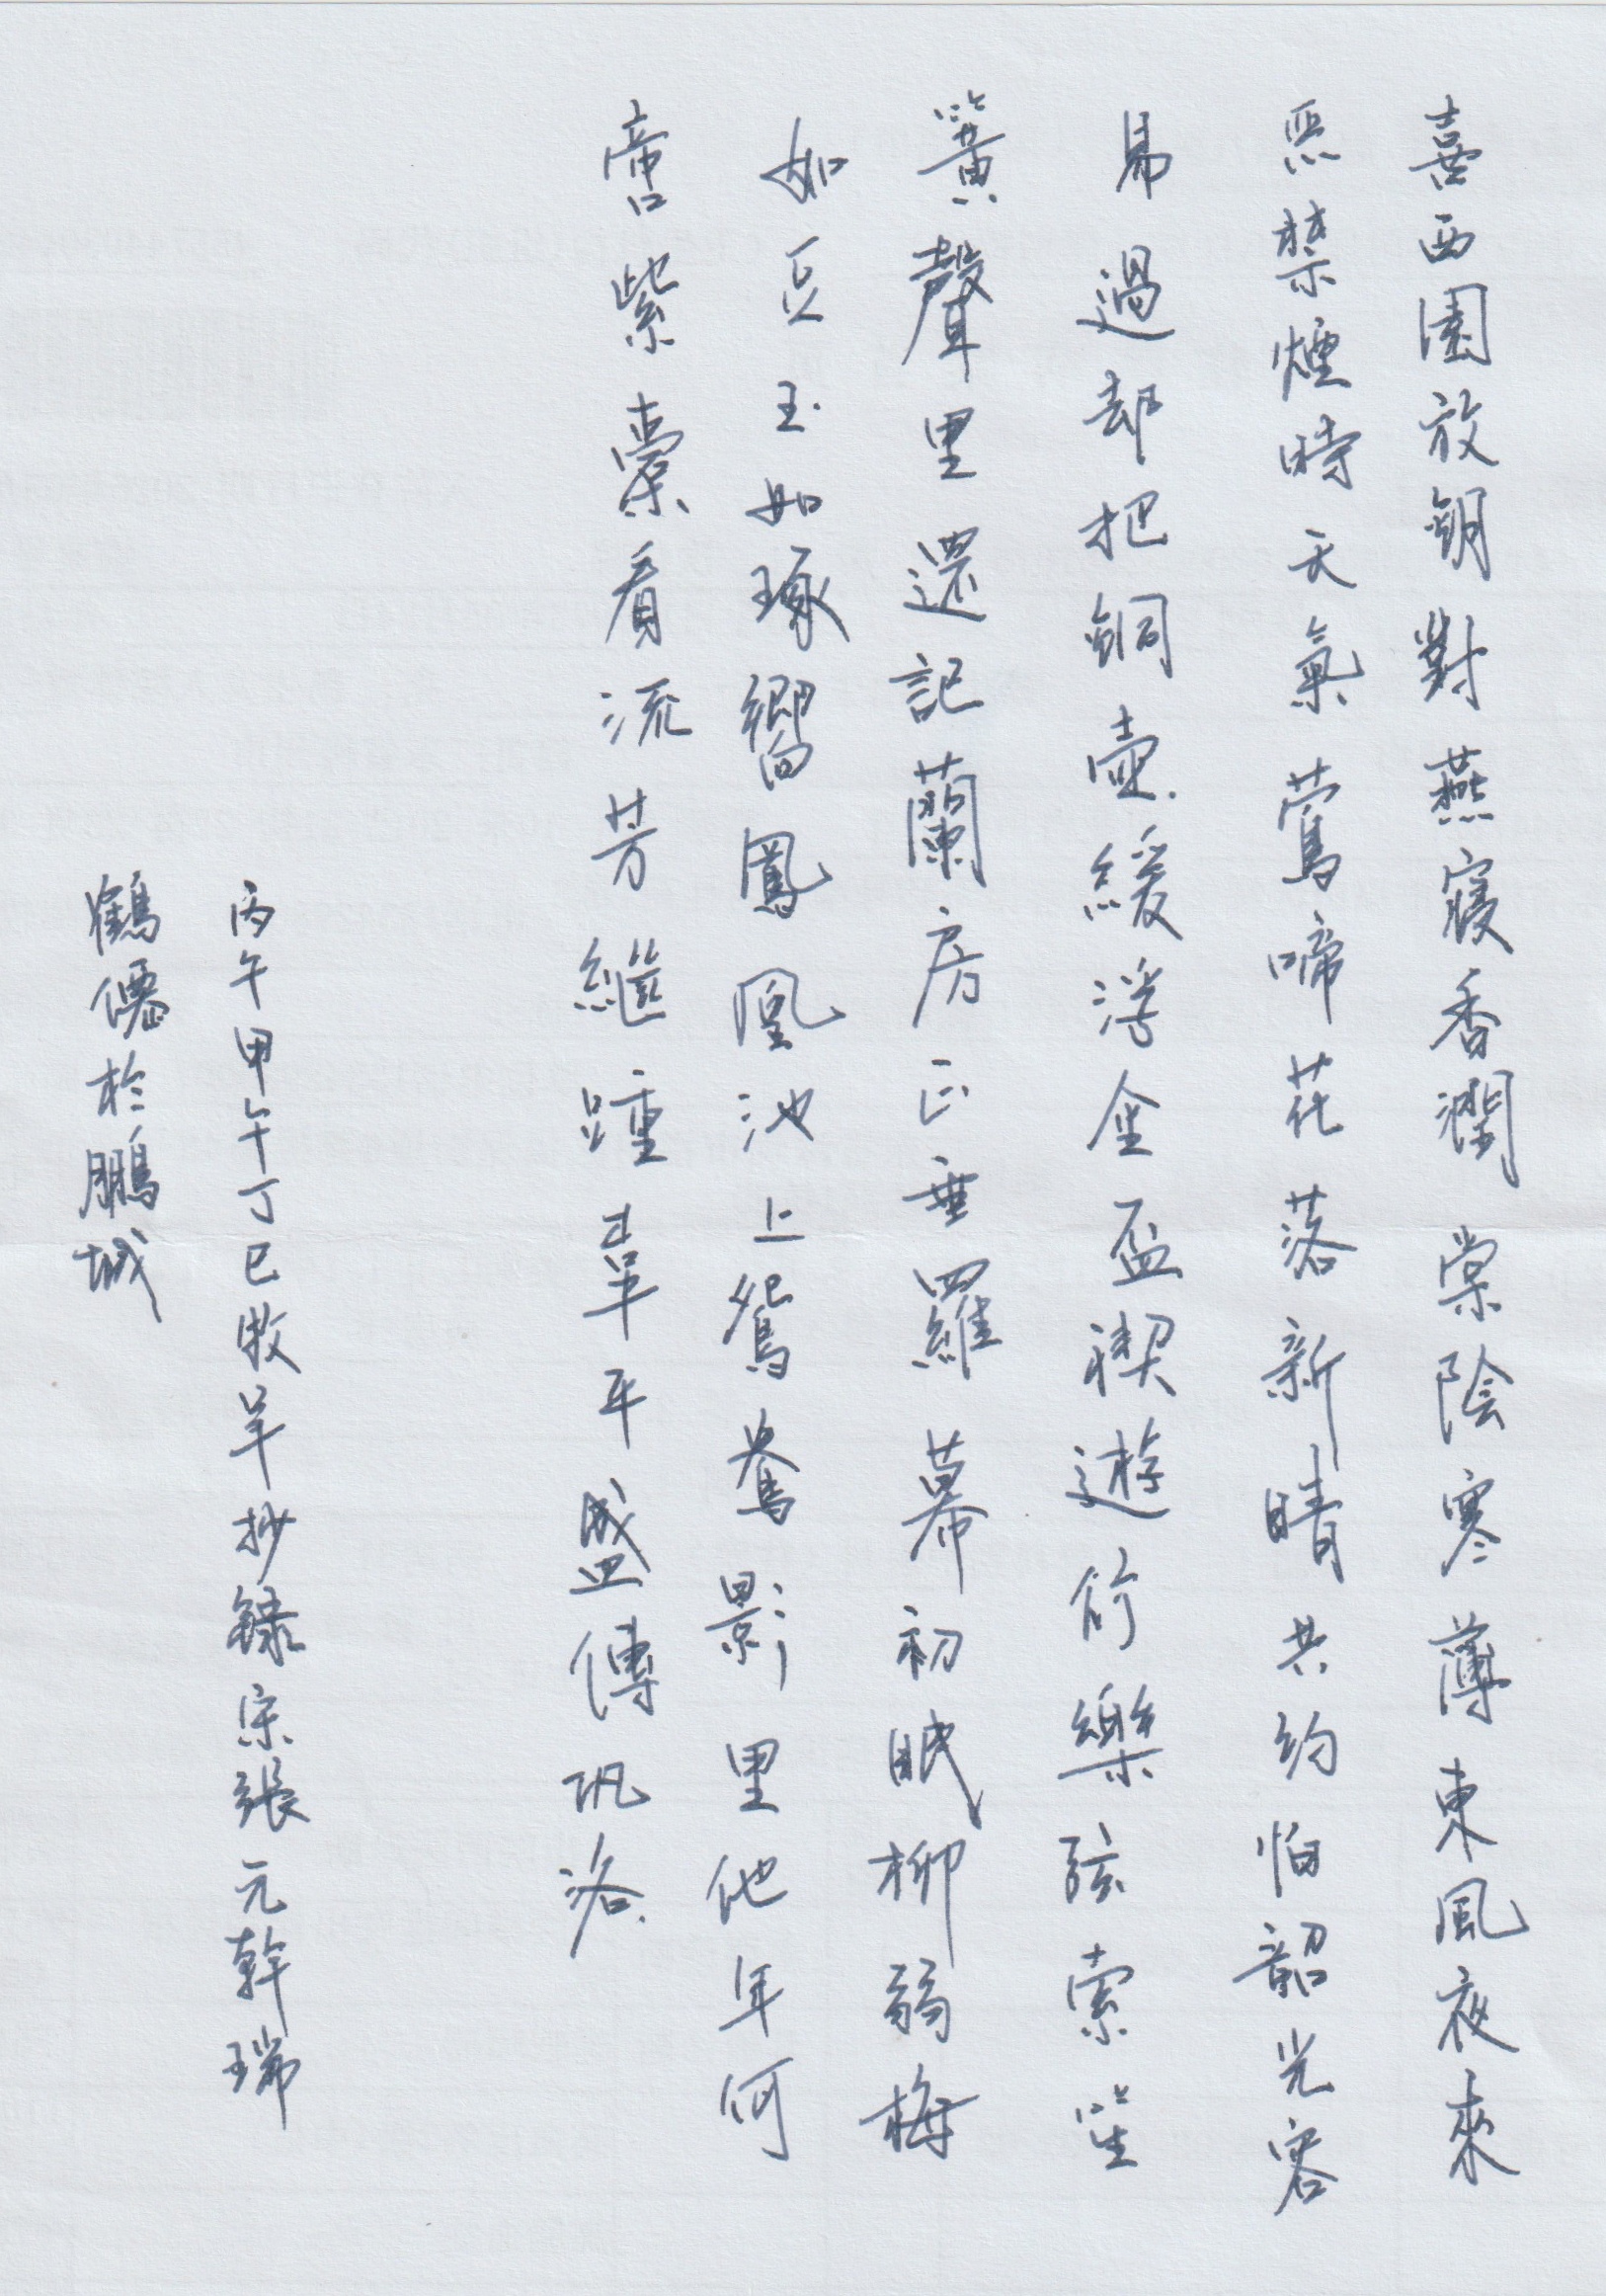 喜西園放鈅對燕寢香潤棠陰寒薄東風夜來
惡禁煙時天氣鶯啼花落新晴共約怕韶光容
易過却把銅壺緩浮金盃禊遊行樂弦索笙
簧聲里還記蘭房正垂羅幕初眠柳弱梅
如豆玉如琢嚮鳳凰池上鴛鴦影里他年何
啻紫橐看流芳繼踵韋平盛傳巩洛
丙午甲午丁巳牧羊抄録宋張元幹瑞
鶴僊於鵬城